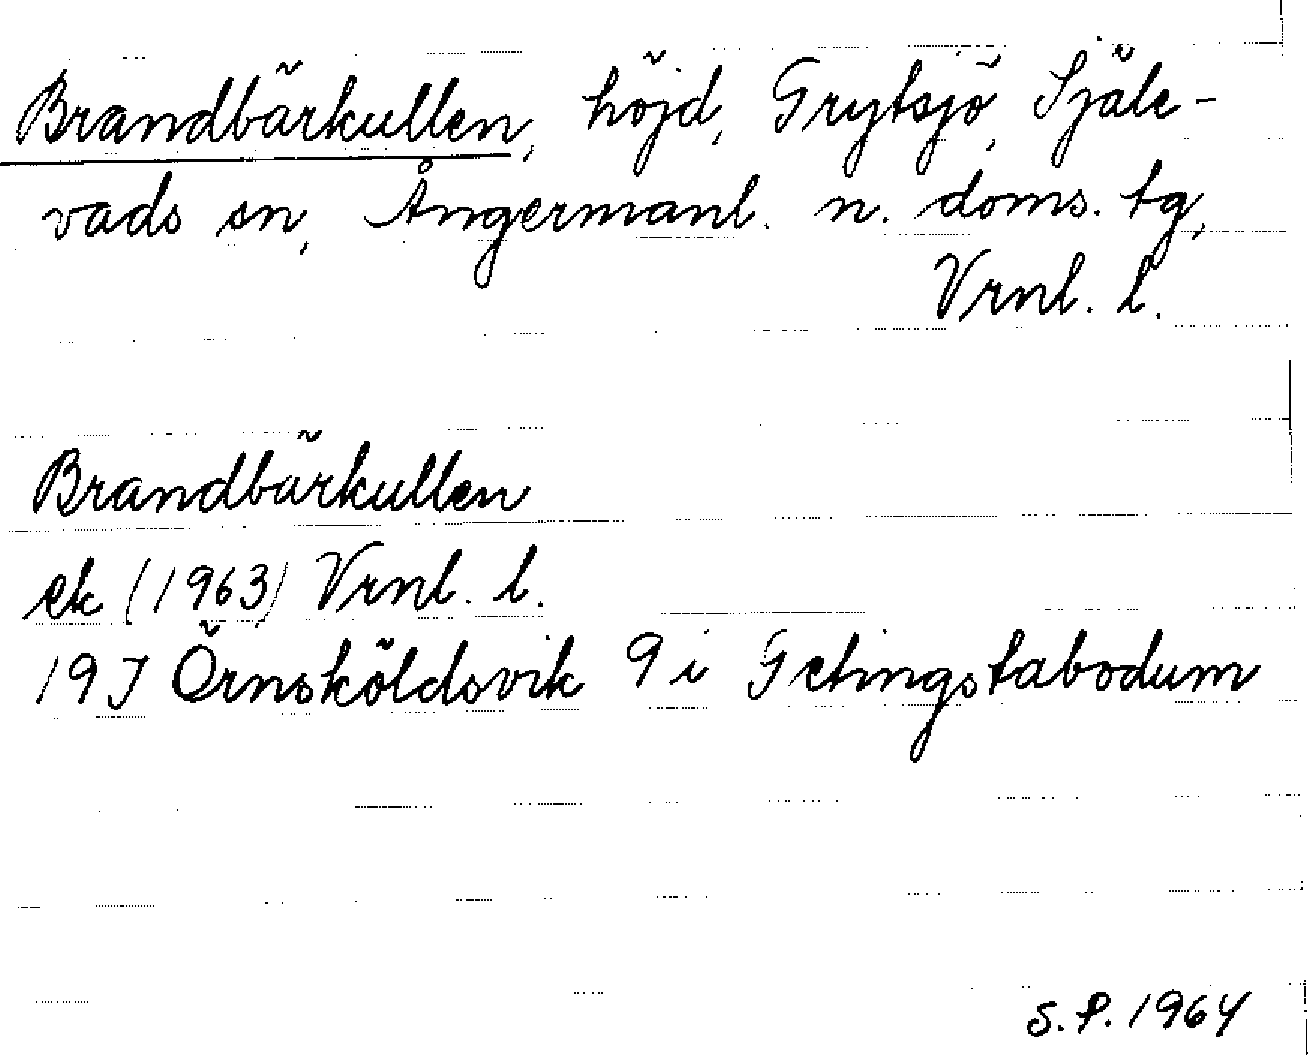 Brandbärkullen, höjd, Grytsjö, Själe-
vads sn, Ångermanl. n. doms. tg,
Vrnl. l.
Brandbärkullen
ek (1963) Vrnl. l.
19J Örnsköldsvik 9 i Getingstabodum
S.P. 1964